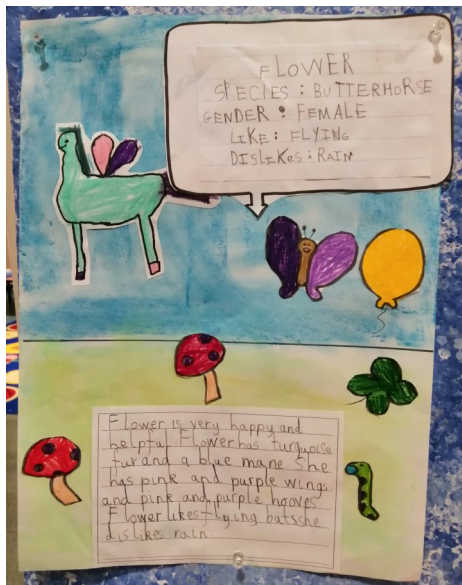 FLOWER
SPECIES : BUTTERHORSE
GENDER : FEMALE
LIKE : FLYING
DISLIKES : RAIN
Flower is very happy and
helpful. Flower has turquoise
fur and a blue mane She
has pink and purple wings
and pink and purple hooves
Flower likes flying but she
dislikes rain.